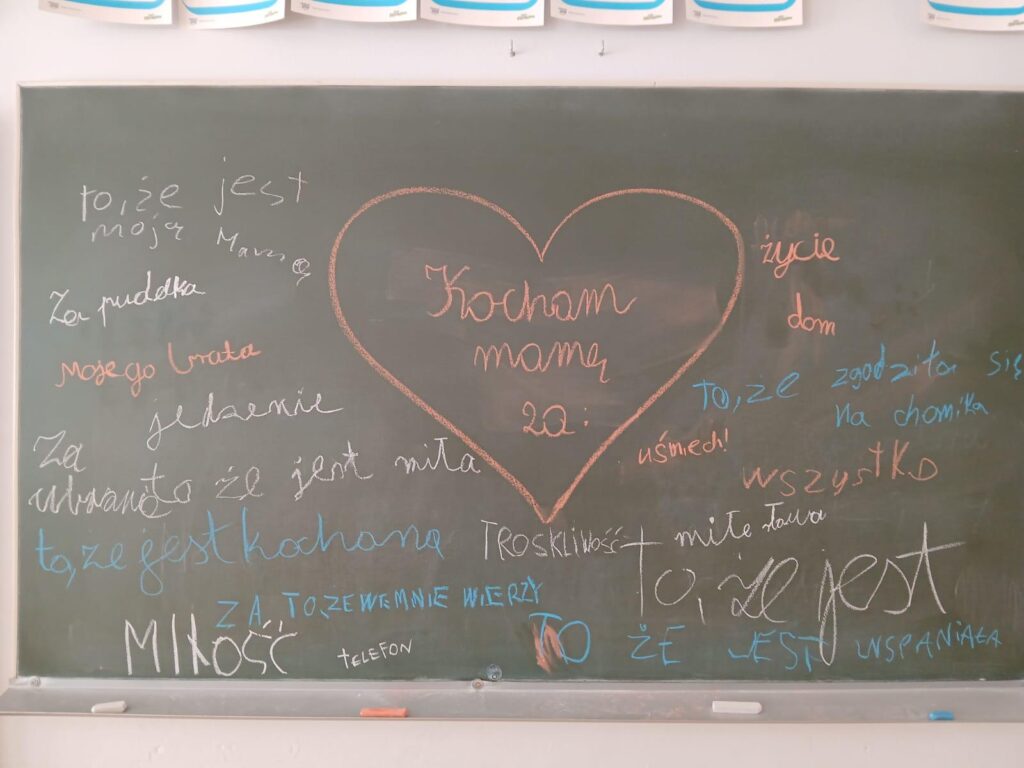 Kocham
mamę
za:
to, że jest
moją
Za pudełka
mojego brata
jedzenie
Za
ubranę
to że jest miła
to, że jest kochaną
ZA, TO, ZE WEMNIE WIERZY
MIŁOŚĆ
TELEFON
życie
dom
to, że zgodziła się
na chomika
uśmiech!
wszystko
TROSKLIWOŚĆ
miłe słowa
to, że jest
TO ŻE JEST WSPANIAŁA